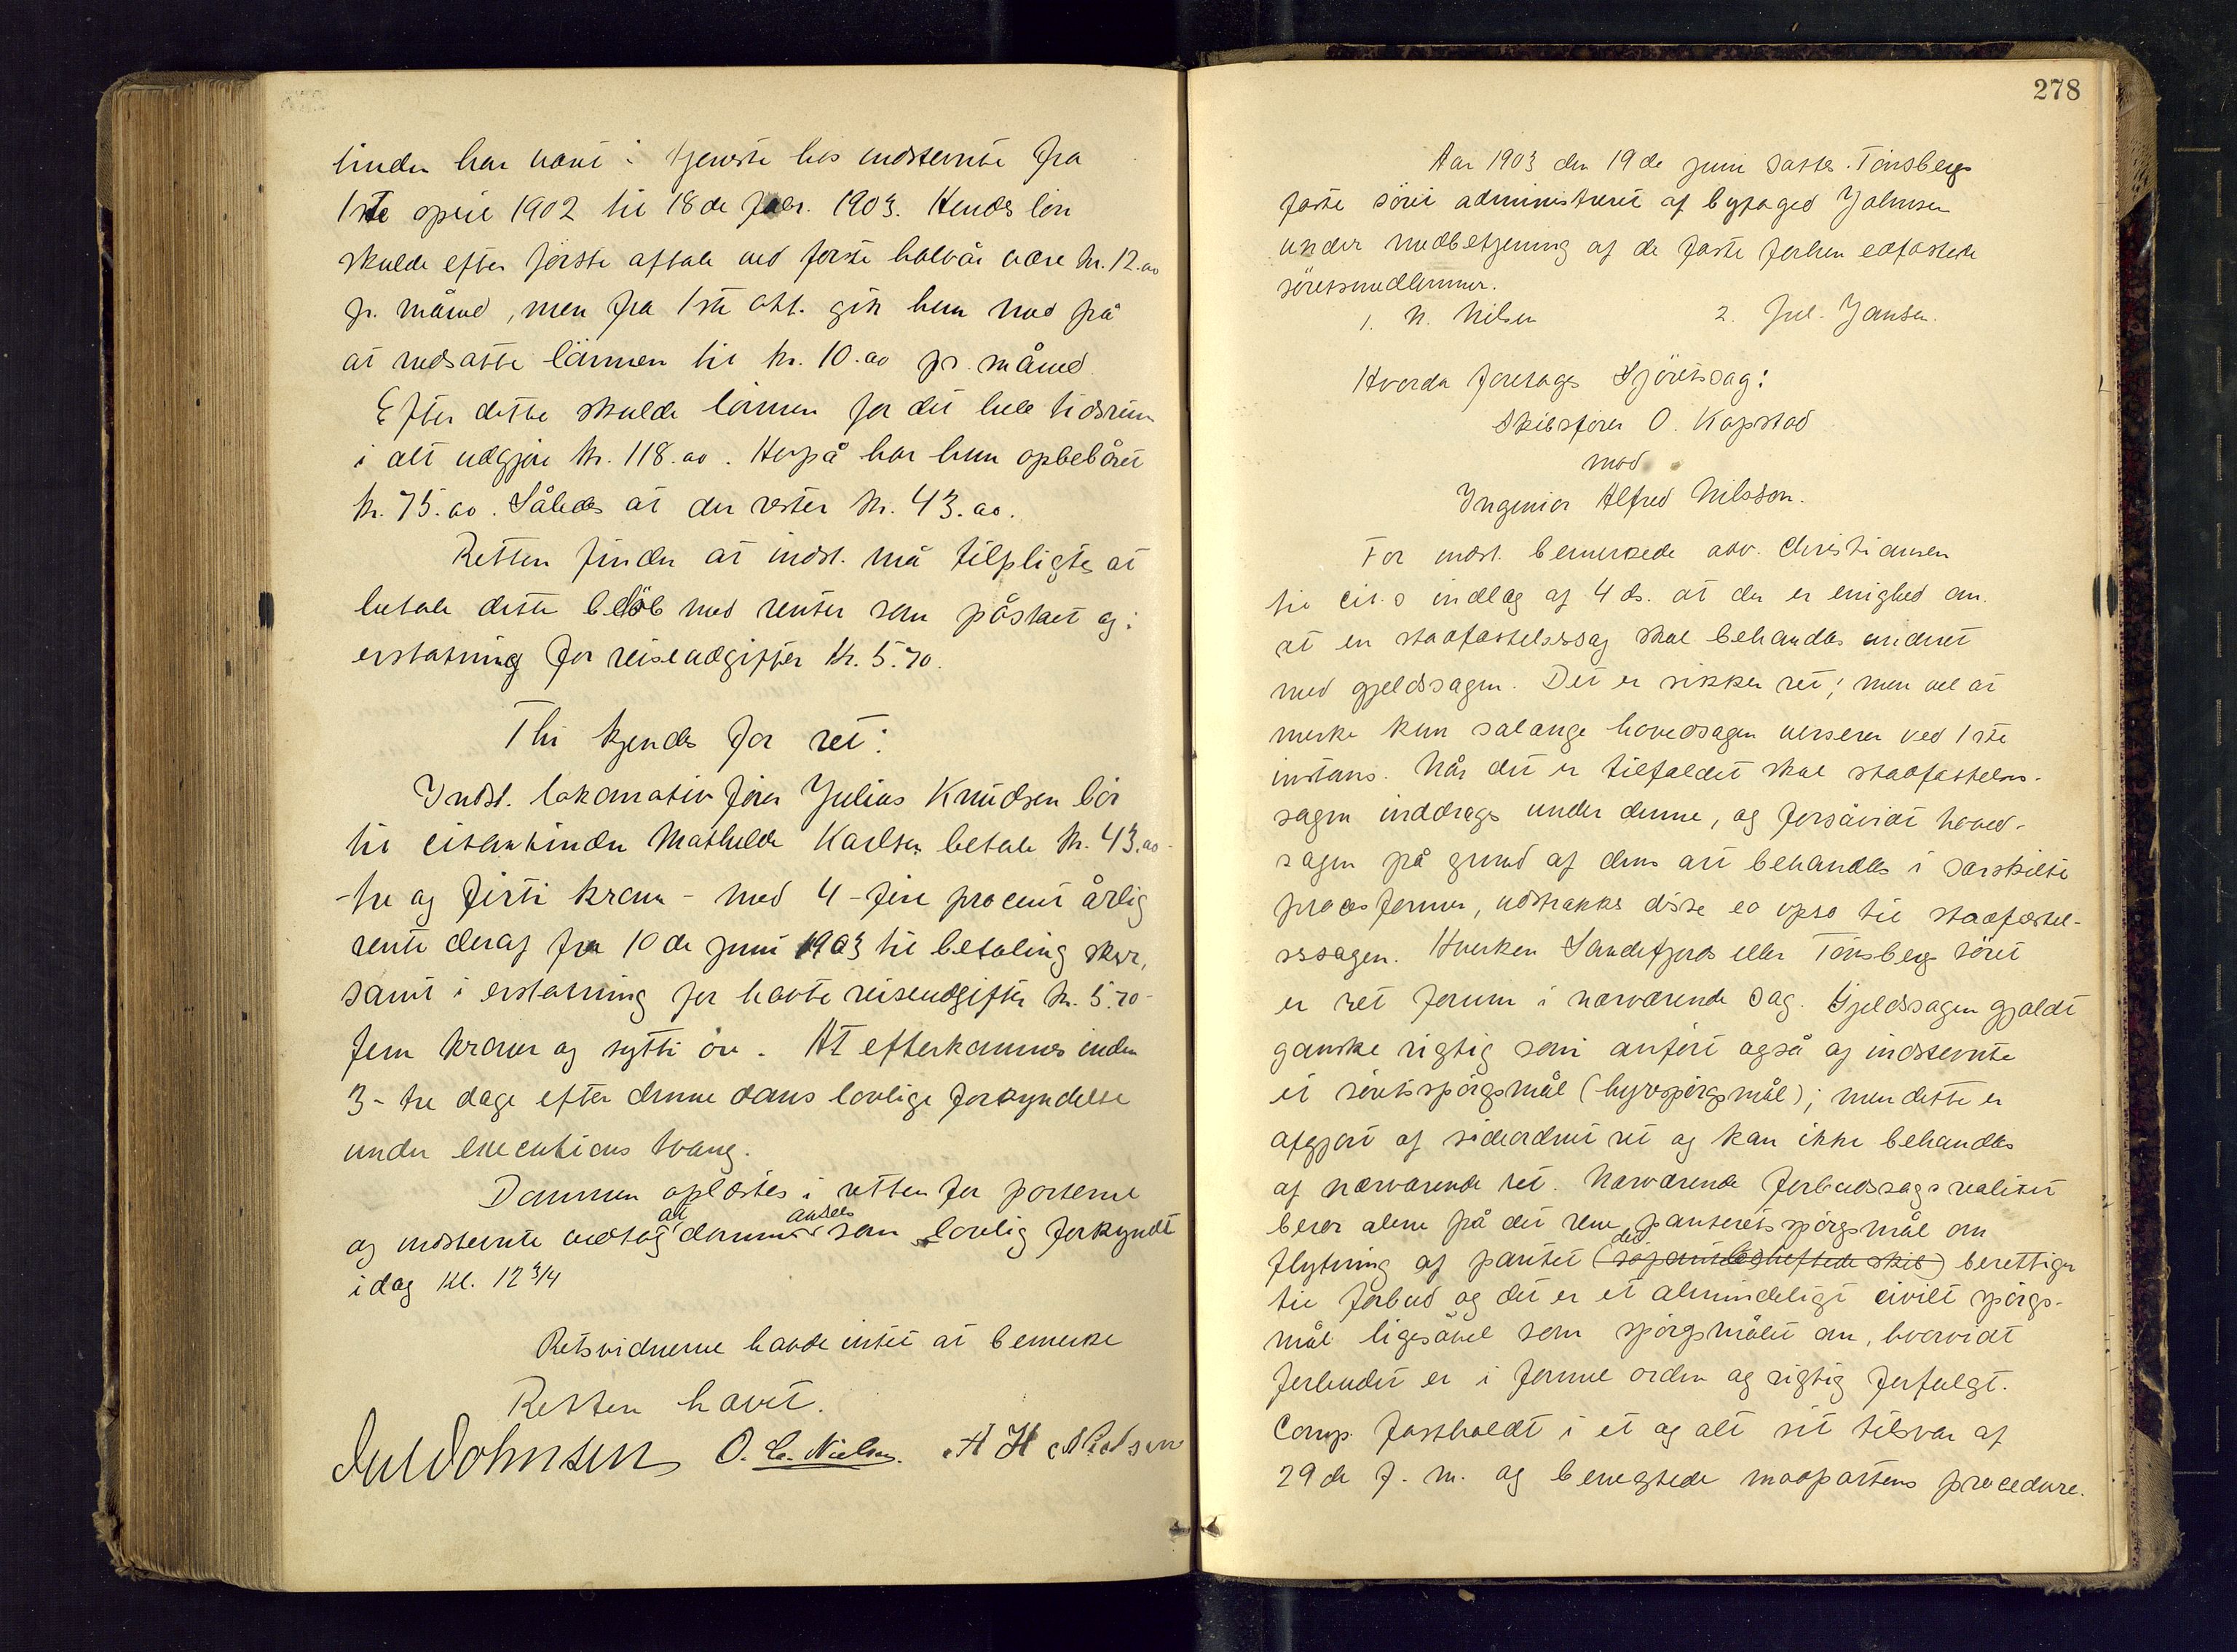 tinden har vært i tjeneste hos indstevnte fra
1ste april 1902 til 18de febr. 1903. Hendes løn
skulde efter første aftale ved første halvår være kr. 12.00
pr. måned, men fra 1ste okt. gik hun med på
at nedsætte lønnen til kr. 10.00 pr. måned.
Efter dette skulde lønnen for det hele tidsrum
i alt udgjøre kr. 118.00. Herpå har hun opbebåret
kr. 75.00. Således at der rester kr. 43.00.
Retten finder at indst. må tilpligtes at
betale dette beløb med renter som påstaet og i
erstatning for reiseudgifter kr. 5.70.
Thi kjendes for ret:
Indst. lokomotivfører Julius Knudsen bør
til citantinden Mathilde Karlsen betale kr. 43.00
- tre og førti kroner - med 4 - fire procent årlig
rente deraf fra 10de juni 1903 til betaling sker,
samt i erstatning for havte reiseudgifter kr. 5.70 -
fem kroner og sytti øre. At efterkommes inden
3 - tre dage efter denne doms lovlige forkyndelse
under executions tvang.
Dommen oplæstes i retten for parterne
og indstevnte vedtog at dommen ansees som lovlig forkyndt
idag kl. 12 3/4
Retsvidnerne havde intet at bemerke
Retten hævet.
Jul Johnsen O. C. Nielsen. A H Nilsen
278
Aar 1903 den 19de juni sattes Tønsbergs
faste søret administreret af byfoged Johnsen
under medbetjening af de faste forhen edfæstede
søretsmedlemmer.
1. N. Nilsen 2. Jul. Jansen.
Hvorda foretoges Sjøretssag:
Skibsfører O. Kapstad
mod
Ingeniør Alfred Nilsson.
For indst. bemerkede adv. Christiansen
til cit.s indlæg af 4 ds. at der er enighed om.
at en stadfæstelsessag skal behandles indenret
med gjeldssagen. Det er sikker ret; men vel at
merke kun sålænge hovedsagen verserer ved 1ste
instans. Når det er tilfældet skal stadfæstelses-
sagen inddrages under denne, og forsåvidt hoved-
sagen på grund af dens art behandles i særskilte
procesformer, udstrækkes disse eo ipso til stadfæstel-
sessagen. Hverken Sandefjords eller Tønsbergs søret
er ret forum i nærværende sag. Gjeldssagen gjaldt
ganske rigtig som anført også af indstevnte
et søretsspørgsmål (hyrespørgsmål); men dette er
afgjort af sideordnet ret og kan ikke behandles
af nærværende ret. Nærværende forbudssags realitet
berør alene på det rene panterets spørgsmål om
flytning af pantet (det søpantebeheftede skib) berettiger
til forbud og det er et almindeligt civilt spørgs-
mål ligesåvel som spørgsmålet om, hvorvidt
forbudet er i formel orden og rigtig forfulgt.
Comp. fastholdt i et og alt sit tilsvar af
29de f. m. og benegtede modpartens procedure.